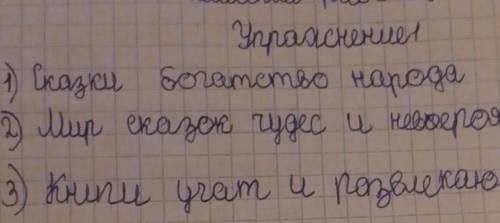 Упражнение 1
1) Сказки богатство народа
2) Мир сказок чудес и невероя
3) Книги учат и развлекаю